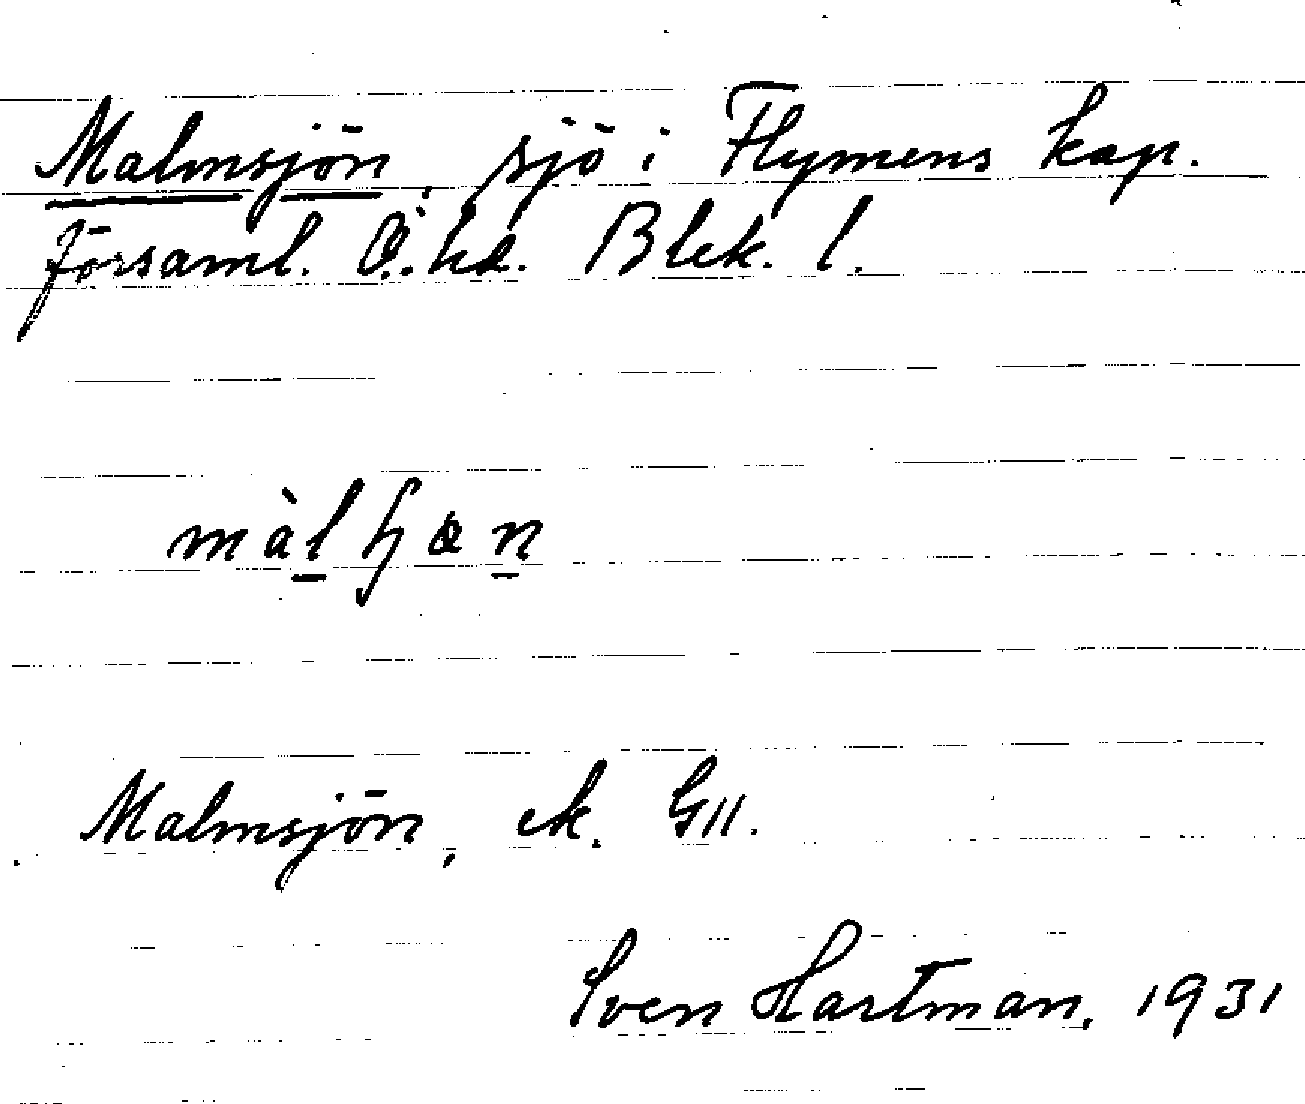 Malmsjön, sjö i Flymens kap.
församl. Ö. hd. Blek. l.
Malmsjön, ek. G11.
Sven Hartman, 1931